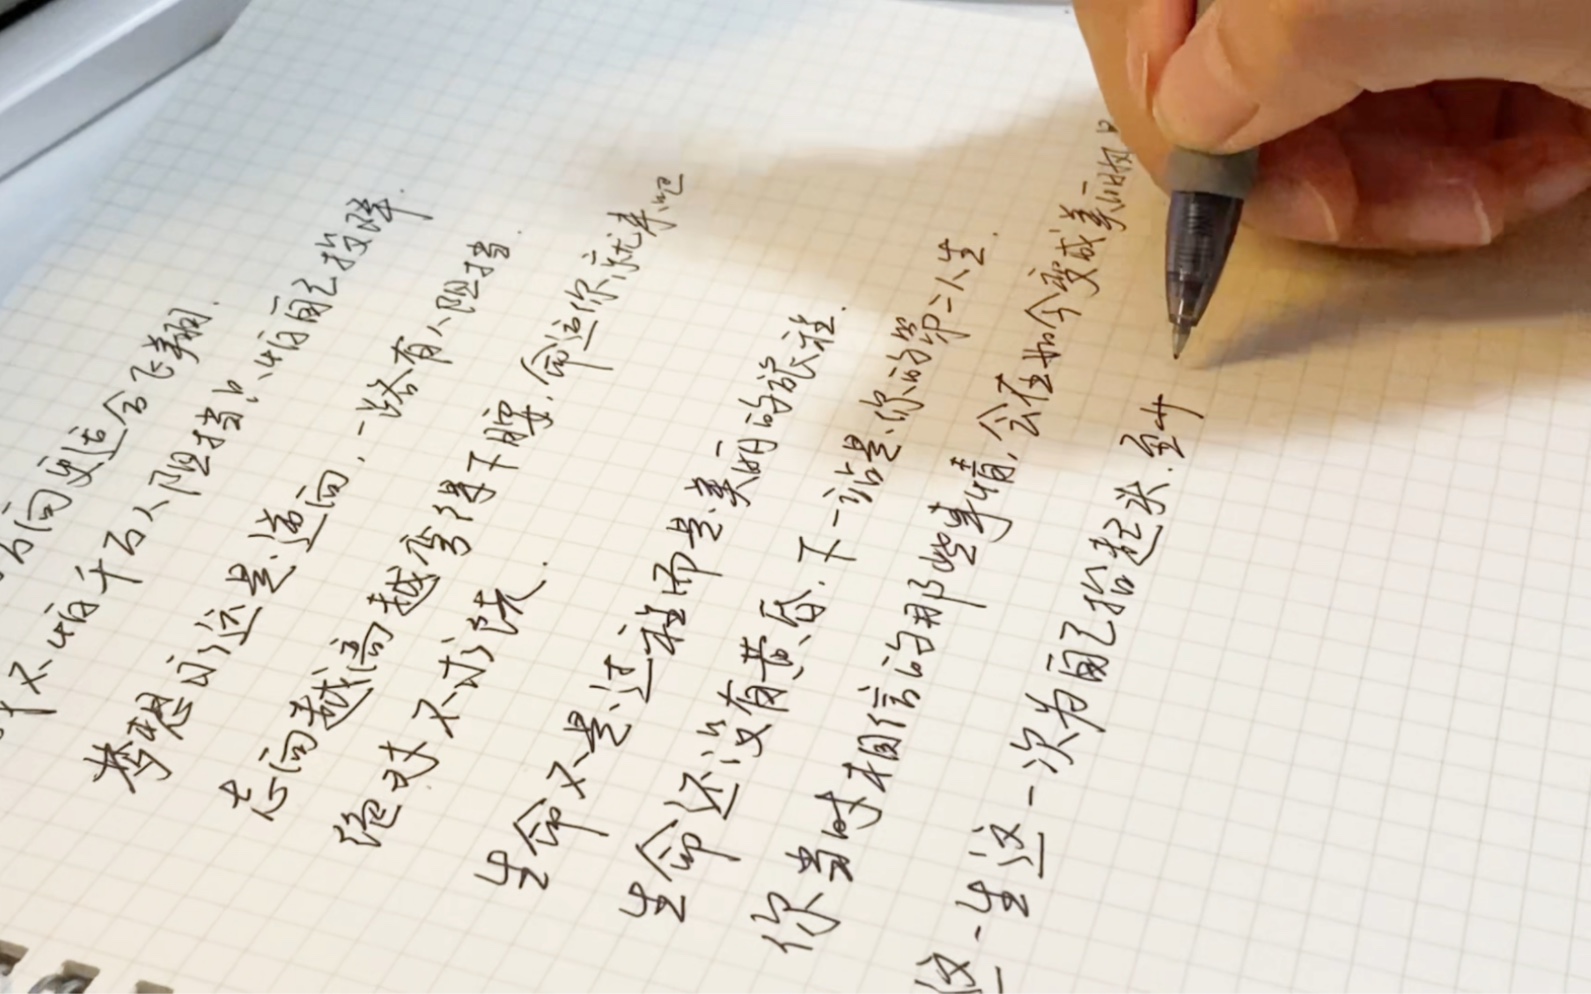 方向更适合飞翔.
不怕千万人阻挡只怕自己投降.
梦想的远是.道向,一路有人阻挡.
志向越高越弯得下腰,命运你就来吧
绝对不求饶.
生命不是过程而是美丽的旅程.
生命还没有黄昏.下一站是你的第二人生.
你当时相信的那些事情,会在如今变成美丽的
这一生这一次为自己抬起头.至少